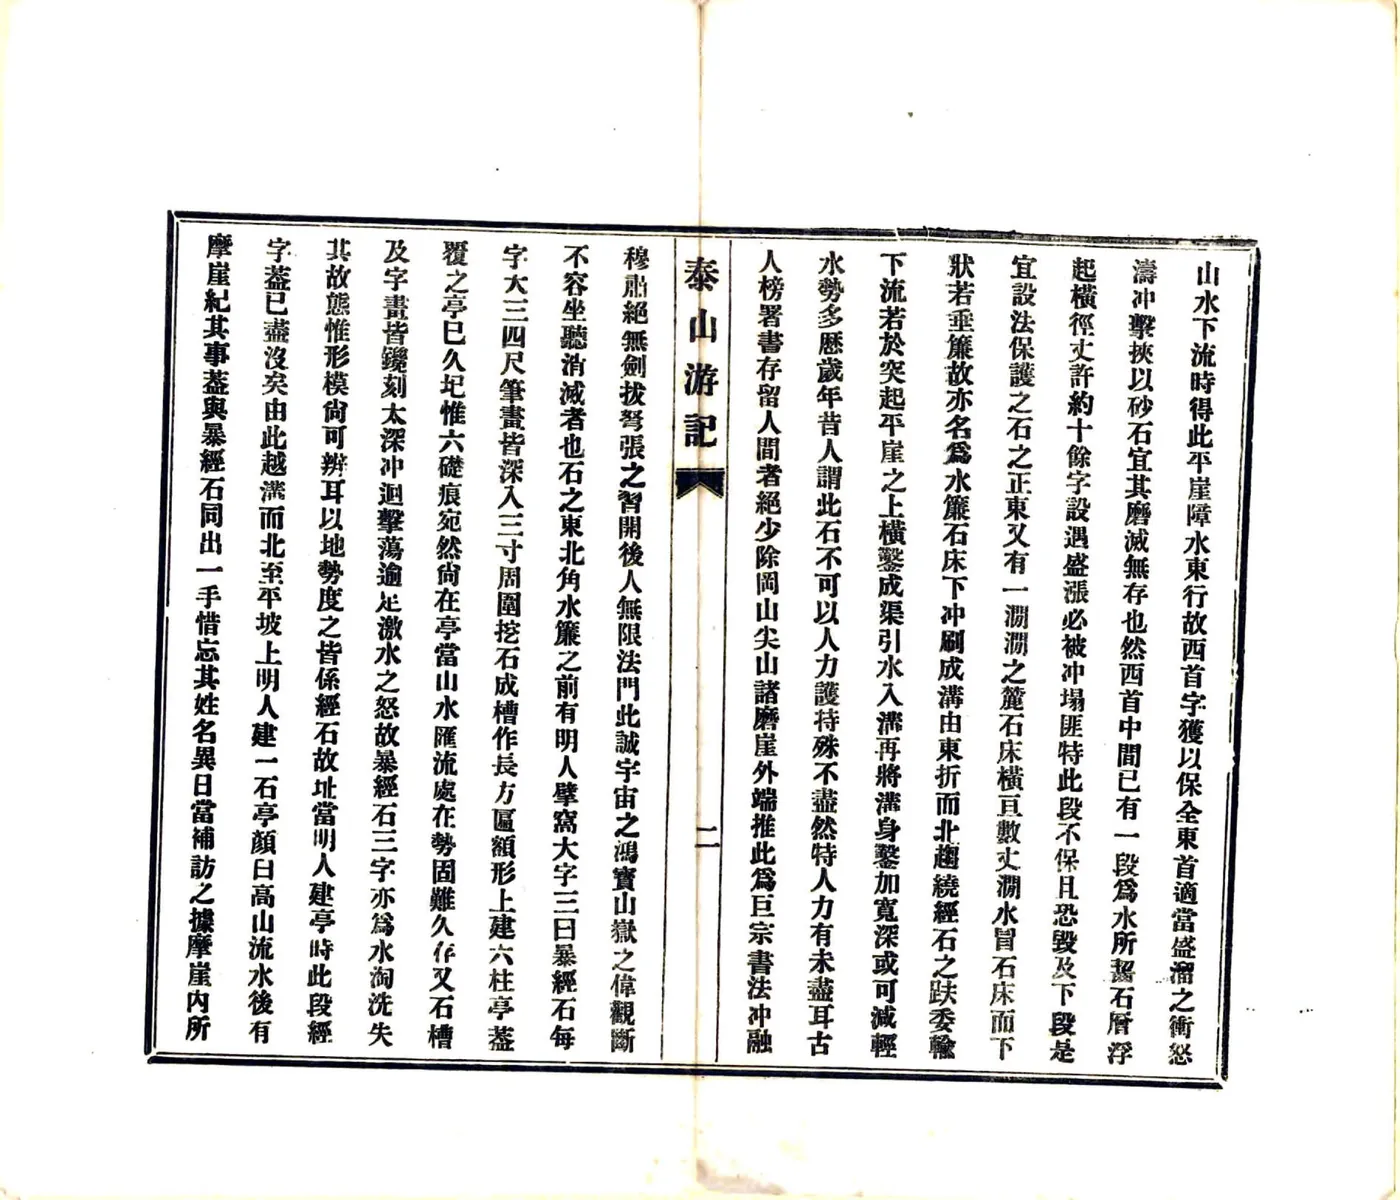 山水下流時得此平崖障水東行故西首字獲以保全東首適當盛溜之衝怒
濤冲擊挾以砂石宜其磨滅無存也然西首中間已有一段爲水所齧石層浮
起橫徑丈許約十餘字設遇盛漲必被冲塌匪特此段不保且恐毀及下段是
宜設法保護之石之正東又有一澗澗之麓石床橫亘數丈澗水冒石床而下
狀若垂簾故亦名爲水簾石床下冲刷成溝由東折而北趨繞經石之趺委輸
下流若於突起平崖之上橫鑿成渠引水入溝再將溝身鑿加寬深或可減輕
水勢多歷歲年昔人謂此石不可以人力護持殊不盡然特人力有未盡耳古
人榜署書存留人間者絕少除岡山尖山諸磨崖外端推此爲巨宗書法冲融
泰山游記
二
穆肅絕無劍拔弩張之習開後人無限法門此誠宇宙之鴻寶山嶽之偉觀斷
不容坐聽消滅者也石之東北角水簾之前有明人擘窩大字三曰暴經石每
字大三四尺筆畫皆深入三寸周圍挖石成槽作長方匾額形上建六柱亭蓋
覆之亭已久圮惟六礎痕宛然尙在亭當山水匯流處在勢固難久存又石槽
及字畫皆鑱刻太深冲迴擊蕩逾足激水之怒故暴經石三字亦爲水淘洗失
其故態惟形模尙可辨耳以地勢度之皆係經石故址當明人建亭時此段經
字蓋已盡沒矣由此越溝而北至平坡上明人建一石亭顏曰高山流水後有
摩崖紀其事蓋與暴經石同出一手惜忘其姓名異日當補訪之據摩崖內所